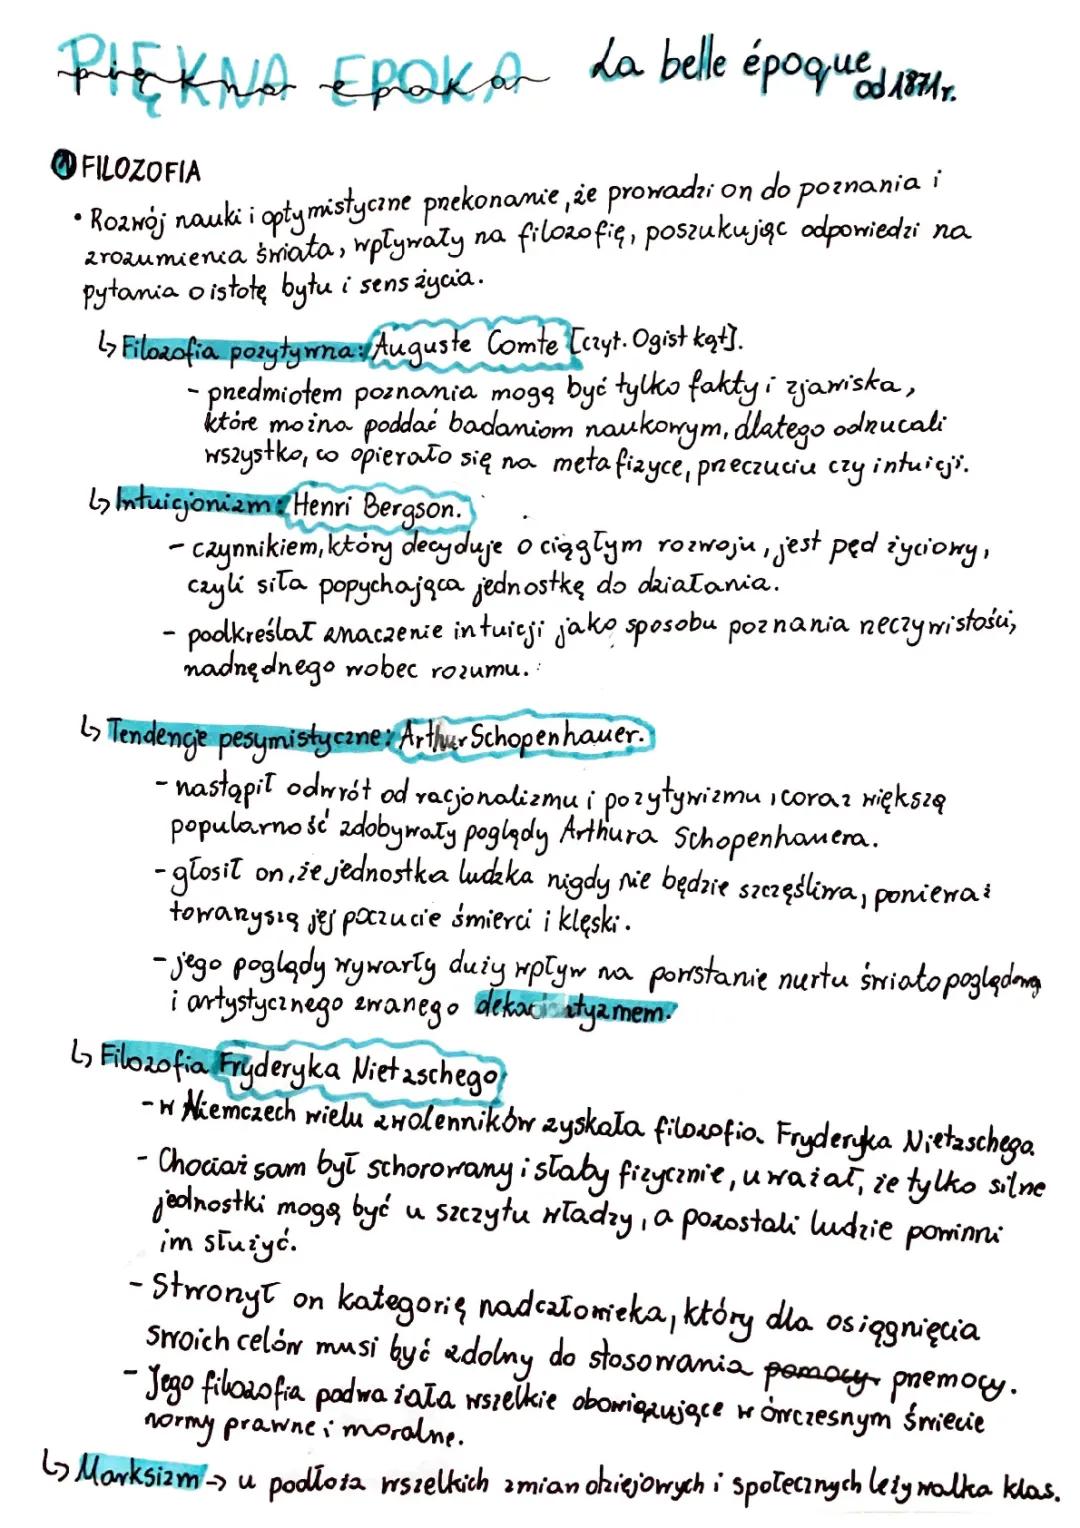 PIĘKNA EPOKA
piękna epoka
La belle époque od 1871r.
1 FILOZOFIA
• Rozwój nauki i optymistyczne przekonanie, że prowadzi on do poznania i
zrozumienia świata, wpływały na filozofię, poszukując odpowiedzi na
pytania o istotę bytu i sens życia.
↳ Filozofia pozytywna: Auguste Comte [czyt. Ogist kąt].
- przedmiotem poznania mogą być tylko fakty i zjawiska,
które można poddać badaniom naukowym, dlatego odrzucali
wszystko, co opierało się na metafizyce, przeczuciu czy intuicji.
↳ Intuicjonizm: Henri Bergson.
- czynnikiem, który decyduje o ciągłym rozwoju, jest pęd życiowy,
czyli siła popychająca jednostkę do działania.
- podkreślał znaczenie intuicji jako sposobu poznania rzeczywistości,
nadrzędnego wobec rozumu.
↳ Tendencje pesymistyczne: Arthur Schopenhauer.
- nastąpił odwrót od racjonalizmu i pozytywizmu, coraz większą
popularność zdobywały poglądy Arthura Schopenhauera.
- głosił on, że jednostka ludzka nigdy nie będzie szczęśliwa, ponieważ
towarzyszą jej poczucie śmierci i klęski.
- jego poglądy wywarły duży wpływ na powstanie nurtu światopoglądowego
i artystycznego zwanego dekadentyzmem.
↳ Filozofia Fryderyka Nietzschego
- w Niemczech wielu zwolenników zyskała filozofia Fryderyka Nietzschego.
- Chociaż sam był schorowany i słaby fizycznie, uważał, że tylko silne
jednostki mogą być u szczytu władzy, a pozostali ludzie powinni
im służyć.
- Stworzył on kategorię nadczłowieka, który dla osiągnięcia
swoich celów musi być zdolny do stosowania pomocy przemocy.
- Jego filozofia podważała wszelkie obowiązujące w ówczesnym świecie
normy prawne i moralne.
↳ Marksizm → u podłoża wszelkich zmian dziejowych i społecznych leży walka klas.